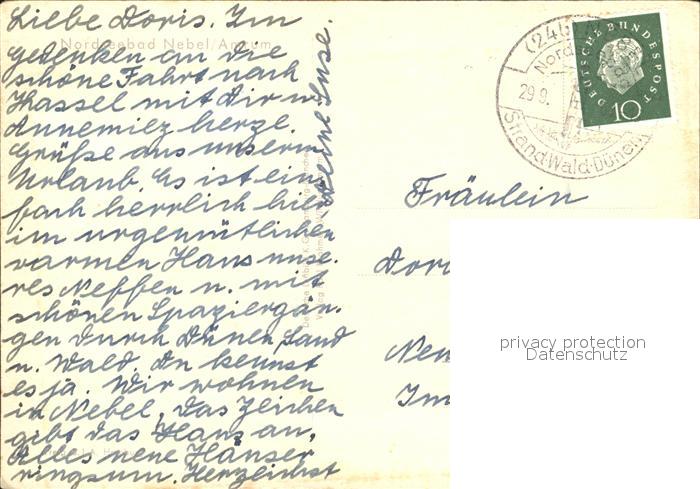 Liebe Doris. Im
Gedenken an die
schöne Fahrt nach
Kassel mit Dir u.
Annemiez herzl.
Grüße aus unserm
Urlaub. Es ist ein-
fach herrlich hier
im urgemütlichen
warmen Haus unse-
res Neffen u. mit
schönen Spaziergän-
gen durch Dünen, Sand
u. Wald. Du kennst
es ja. Wir wohnen
in Nebel, das Zeichen
gibt das Haus an,
Alles neue Häuser
ringsum. Herzlichst
Deine Suse.
Nordseebad Nebel/Amrum
(24b)
Nord
29.9.
Strand·Wald·Dünen
DEUTSCHE BUNDESPOST
10
Fräulein
Dori
Neu
Im
privacy protection
Datenschutz